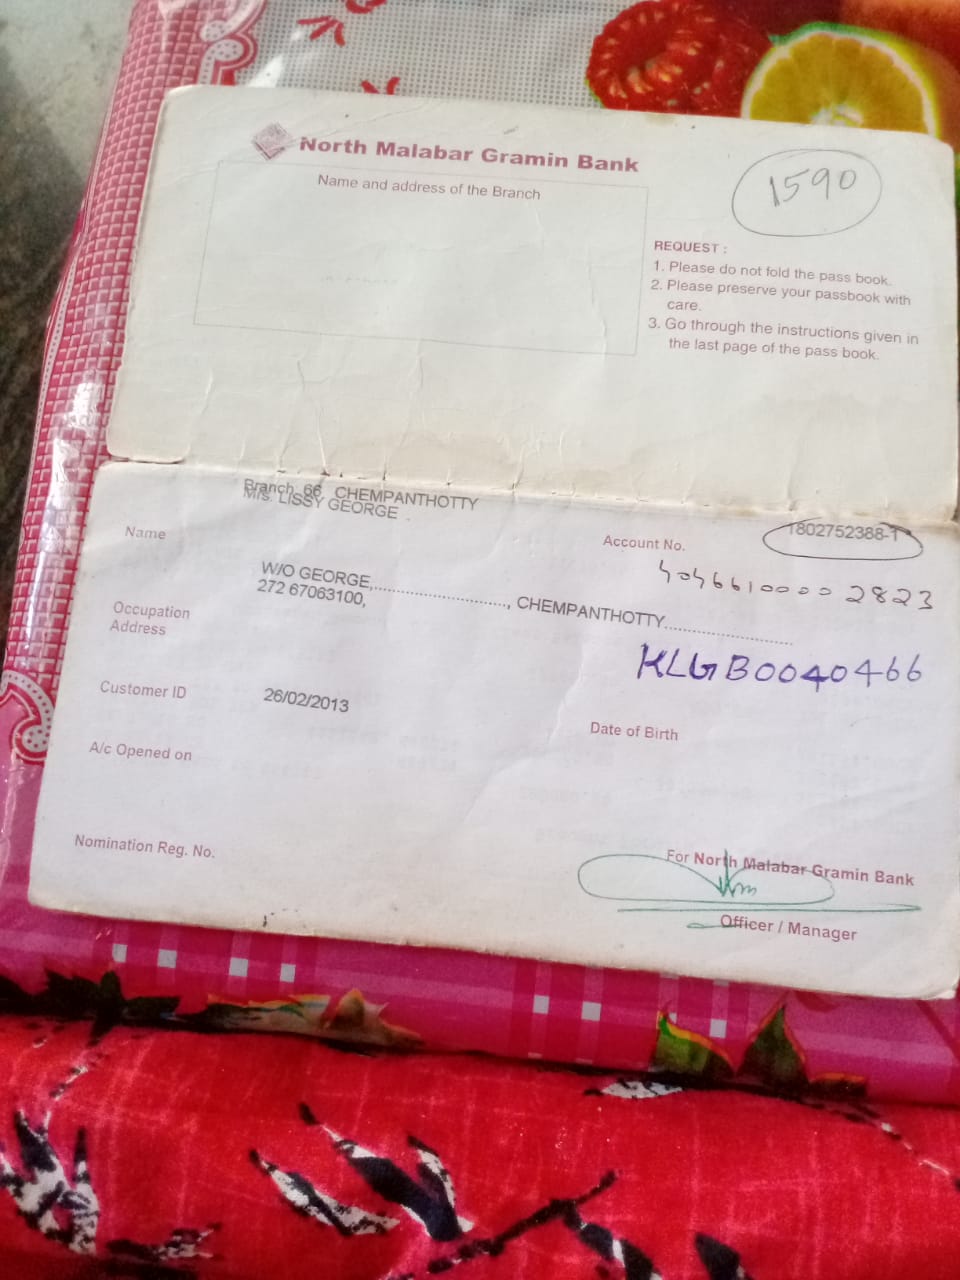 North Malabar Gramin Bank
Name and address of the Branch
1590
REQUEST :
1. Please do not fold the pass book.
2. Please preserve your passbook with
care.
3. Go through the instructions given in
the last page of the pass book.
Branch 66 CHEMPANTHOTTY
Mrs. LISSY GEORGE
Name
Account No.
1802752388-1
40466100002823
W/O GEORGE,............................, CHEMPANTHOTTY..........................
272 67063100,
Occupation
Address
KLGB0040466
Customer ID
26/02/2013
Date of Birth
A/c Opened on
Nomination Reg. No.
For North Malabar Gramin Bank
Officer / Manager